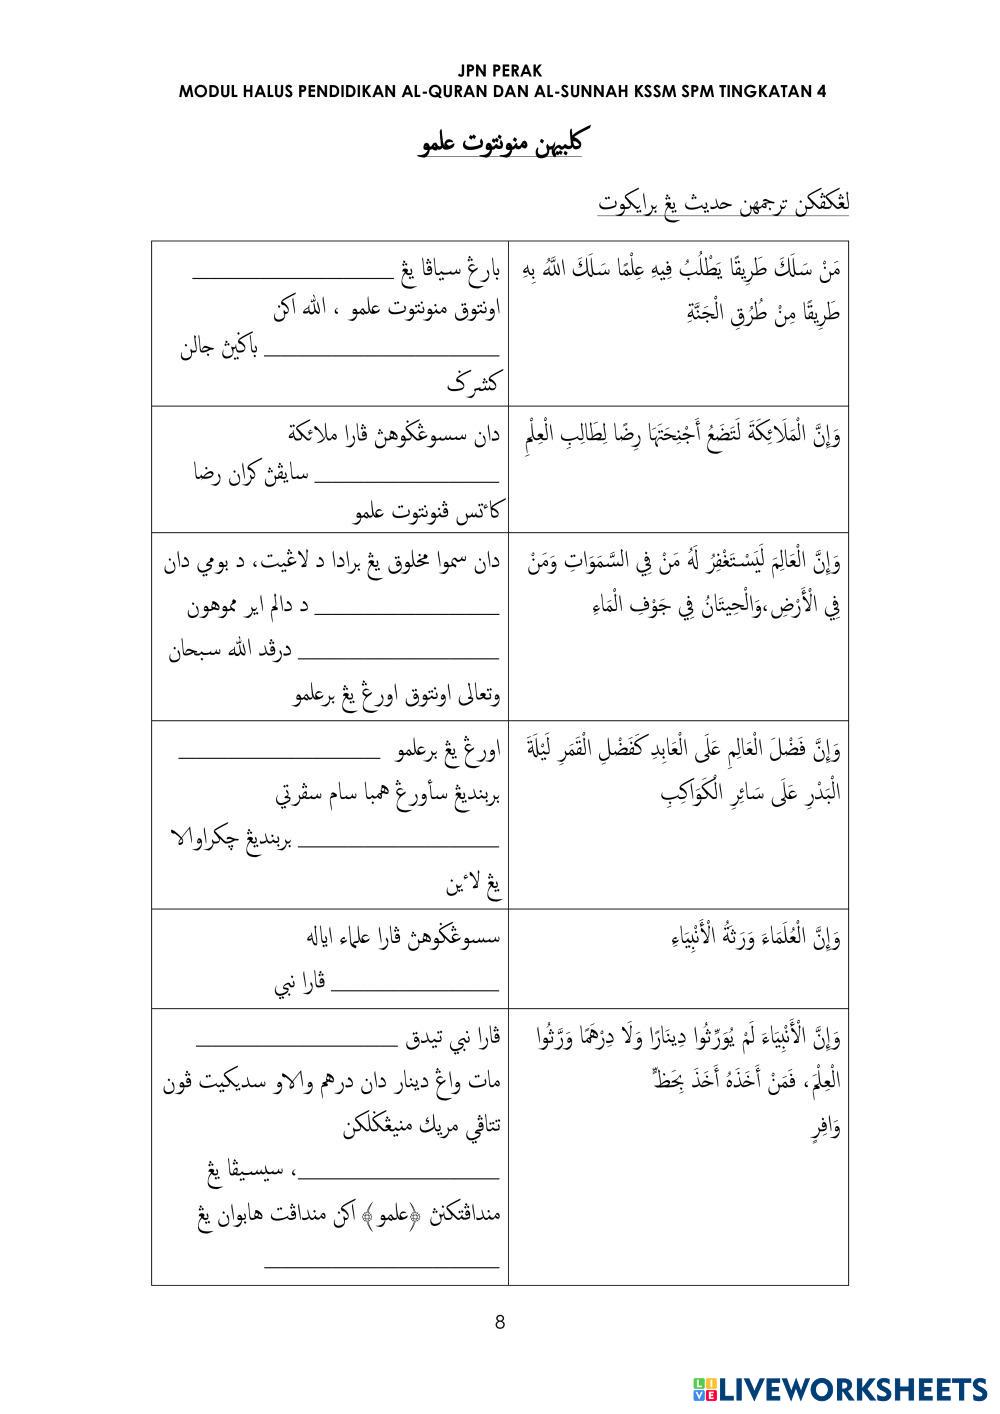 JPN PERAK
MODUL HALUS PENDIDIKAN AL-QURAN DAN AL-SUNNAH KSSM SPM TINGKATAN 4
كلبيهن منونتوت علمو
لڠکڤکن ترجمهن حديث يڠ برايكوت
مَنْ سَلَكَ طَرِيقًا يَطْلُبُ فِيهِ عِلْمًا سَلَكَ اللَّهُ بِهِ
طَرِيقًا مِنْ طُرُقِ الْجَنَّةِ
بارڠ سياڤا يڠ ____________________
اونتوق منونتوت علمو ، الله اكن
____________________ باݢيڽ جالن
كشرݢ
وَإِنَّ الْمَلَائِكَةَ لَتَضَعُ أَجْنِحَتَهَا رِضًا لِطَالِبِ الْعِلْمِ
دان سسوڠݢوهڽ ڤارا ملائكة
____________________ سايڤڽ كران رضا
كاءتس ڤنونتوت علمو
وَإِنَّ الْعَالِمَ لَيَسْتَغْفِرُ لَهُ مَنْ فِي السَّمَوَاتِ وَمَنْ
فِي الْأَرْضِ،وَالْحِيتَانُ فِي جَوْفِ الْمَاءِ
دان سموا مخلوق يڠ برادا د لاڠيت، د بومي دان
____________________ د دالم اير مموهون
____________________ درڤد الله سبحان
وتعالى اونتوق اورڠ يڠ برعلمو
وَإِنَّ فَضْلَ الْعَالِمِ عَلَى الْعَابِدِ كَفَضْلِ الْقَمَرِ لَيْلَةَ
الْبَدْرِ عَلَى سَائِرِ الْكَوَاكِبِ
اورڠ يڠ برعلمو ____________________
بربنديڠ سأورڠ همبا سام سڤرتي
____________________ بربنديڠ چكراوالا
يڠ لاءين
وَإِنَّ الْعُلَمَاءَ وَرَثَةُ الْأَنْبِيَاءِ
سسوڠݢوهڽ ڤارا علماء اياله
____________________ ڤارا نبي
وَإِنَّ الْأَنْبِيَاءَ لَمْ يُوَرِّثُوا دِينَارًا وَلَا دِرْهَمًا وَرَّثُوا
الْعِلْمَ، فَمَنْ أَخَذَهُ أَخَذَ بِحَظٍّ
وَافِرٍ
ڤارا نبي تيدق ____________________
مات واڠ دينار دان درهم والاو سديكيت ڤون
تتاڤي مريك منيڠݢلكن
____________________، سيسيڤا يڠ
منداڤتكنڽ ﴿علمو﴾ اكن منداڤت هابوان يڠ
____________________
8
LIVEWORKSHEETS